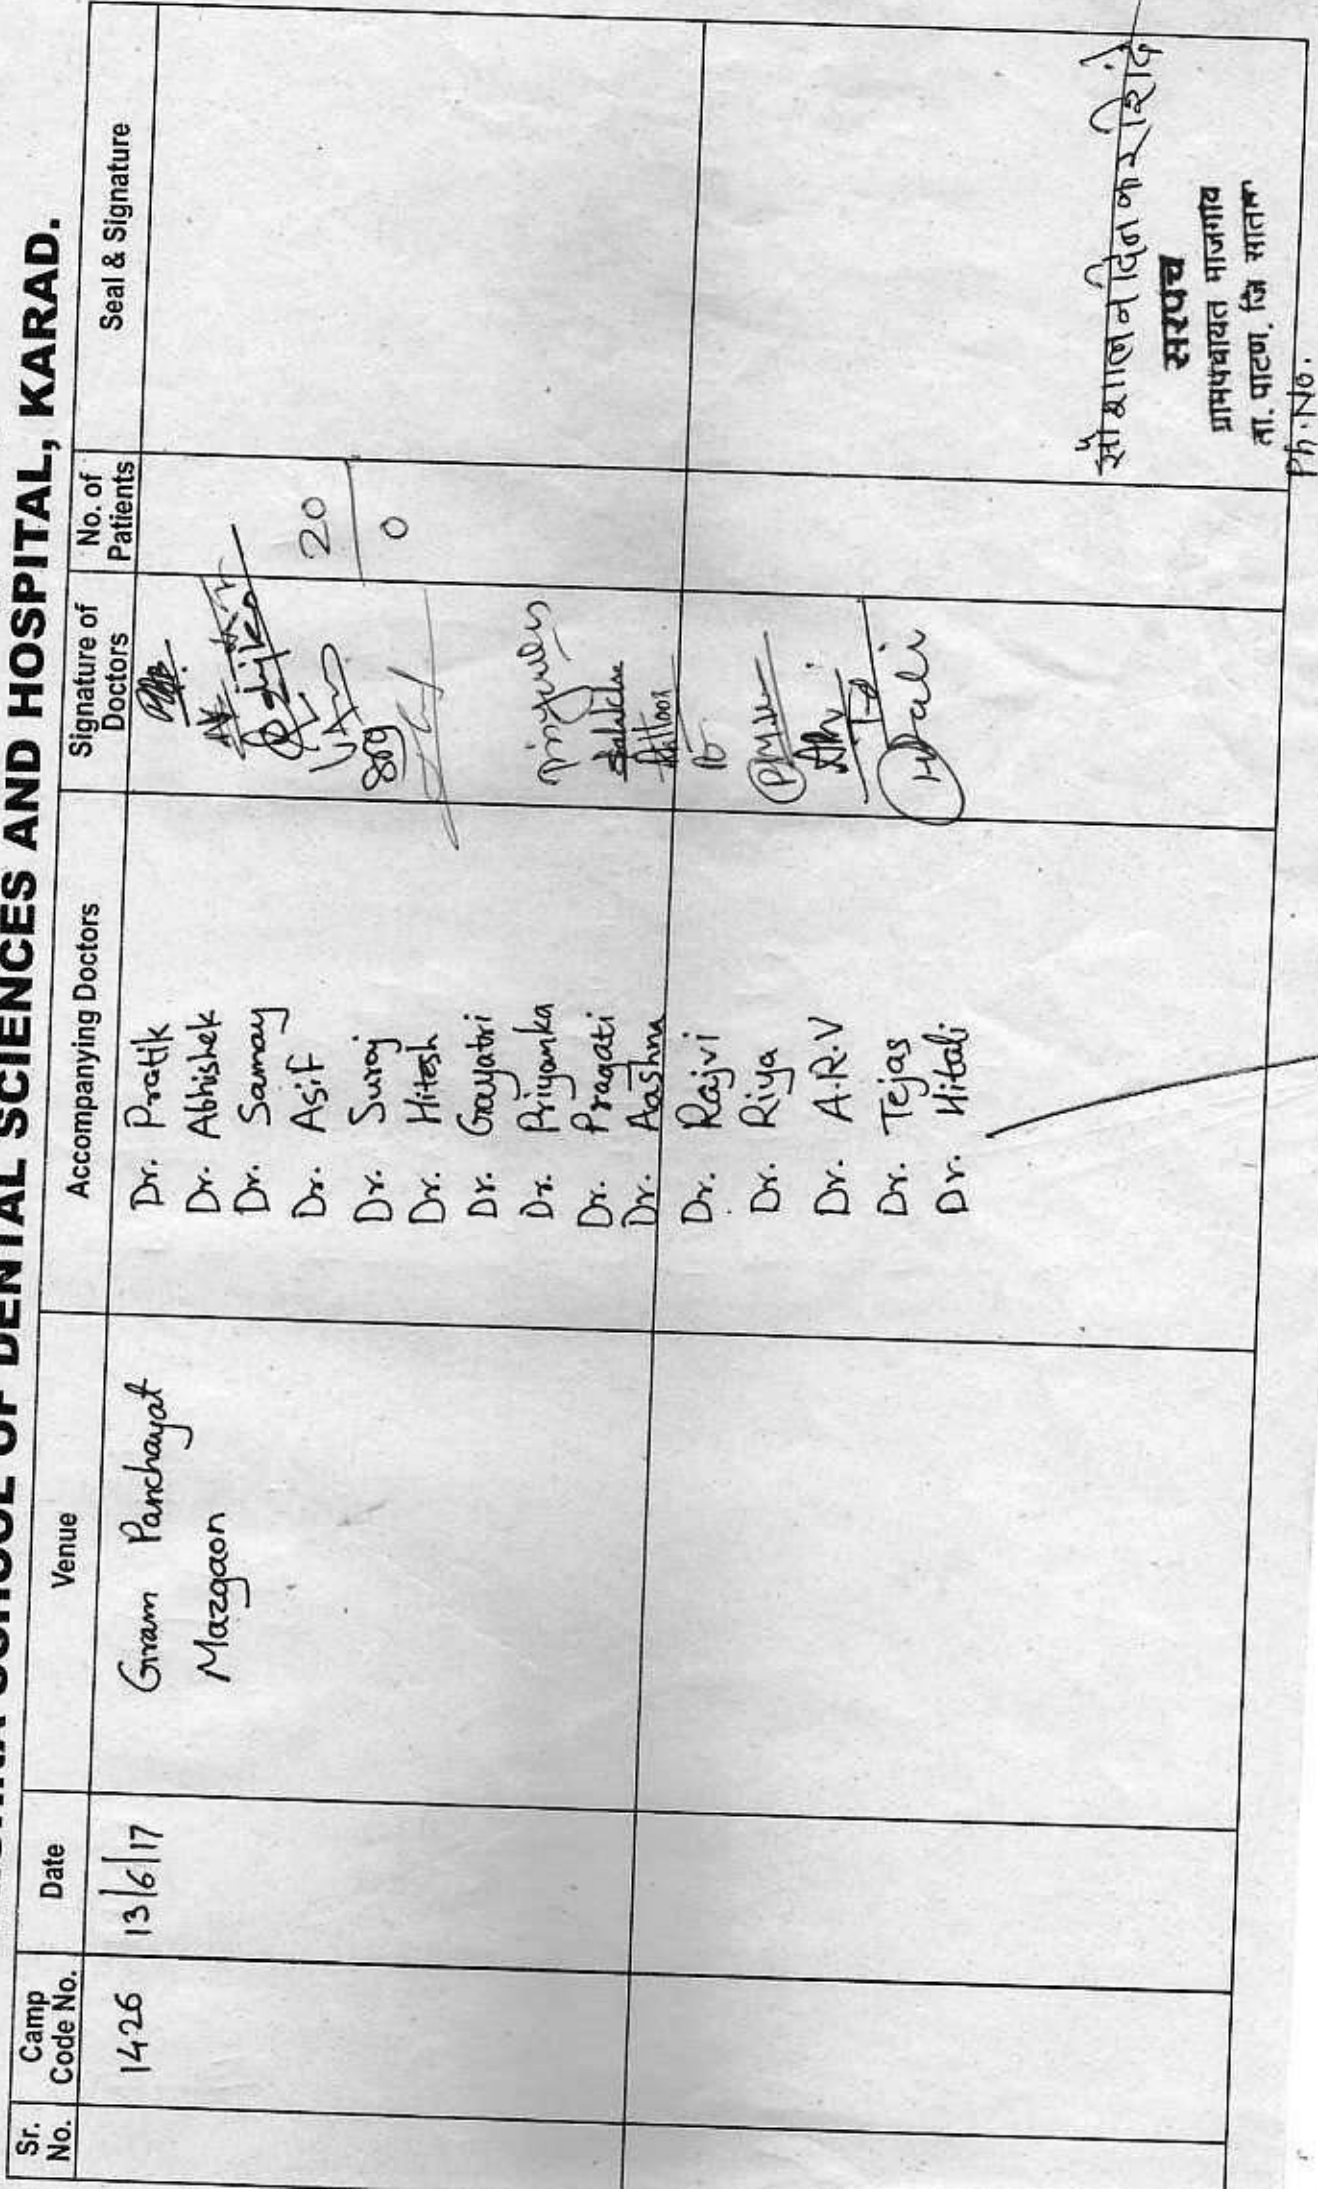 SCHOOL OF DENTAL SCIENCES AND HOSPITAL, KARAD.
Sr. No.
Camp Code No.
Date
Venue
Accompanying Doctors
Signature of Doctors
No. of Patients
Seal & Signature
1426
13/6/17
Gram Panchayat
Mazgaon
Dr. Pratik
Dr. Abhishek
Dr. Samay
Dr. Asif
Dr. Suraj
Dr. Hitesh
Dr. Gayatri
Dr. Priyanka
Dr. Pragati
Dr. Aashna
Dr. Rajvi
Dr. Riya
Dr. A.R.V
Dr. Tejas
Dr. Hitali
20
0
दिनकर शिंदे
सरपंच
ग्रामपंचायत माजगांव
ता. पाटण, जि सातारा
Ph. No.